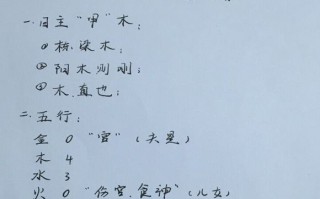 一.日主“甲”木;
①栋梁木;
②阳木刚刚;
③木.直也;
二.五行:
金 0 “官”(夫星)
木 4
水 3
火 0 “伤官.食神”(儿女)